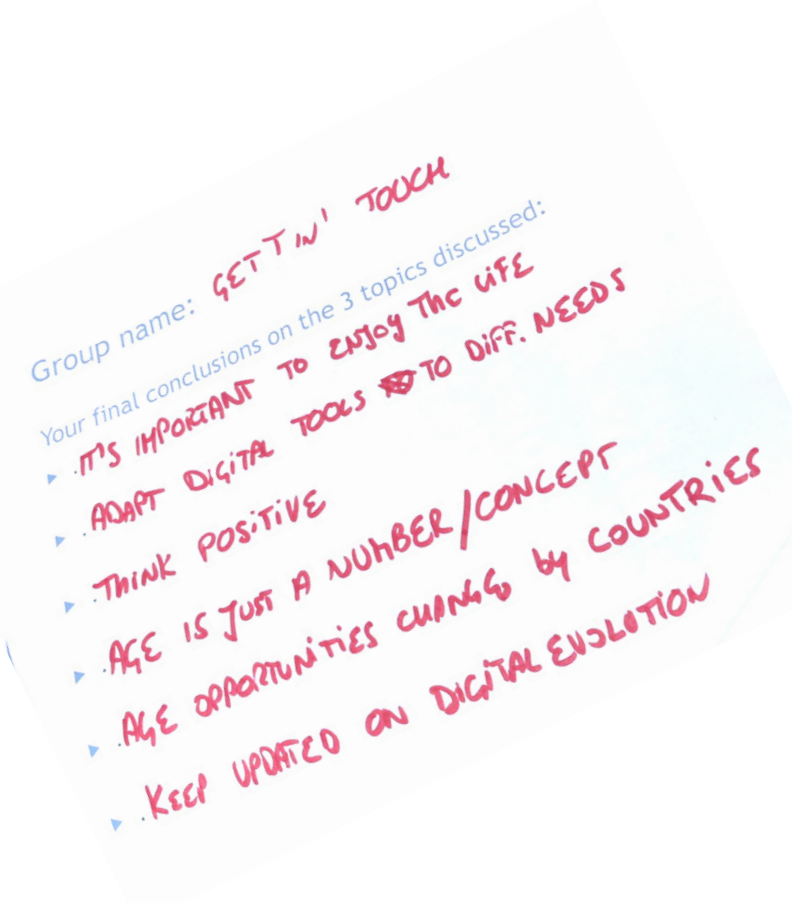 Group name: GETTIN' TOUCH
Your final conclusions on the 3 topics discussed:
IT'S IMPORTANT TO ENJOY THE LIFE
ADAPT DIGITAL TOOLS TO DIFF. NEEDS
THINK POSITIVE
AGE IS JUST A NUMBER/CONCEPT
AGE OPPORTUNITIES CHANGE by COUNTRIES
KEEP UPDATED ON DIGITAL EVOLUTION